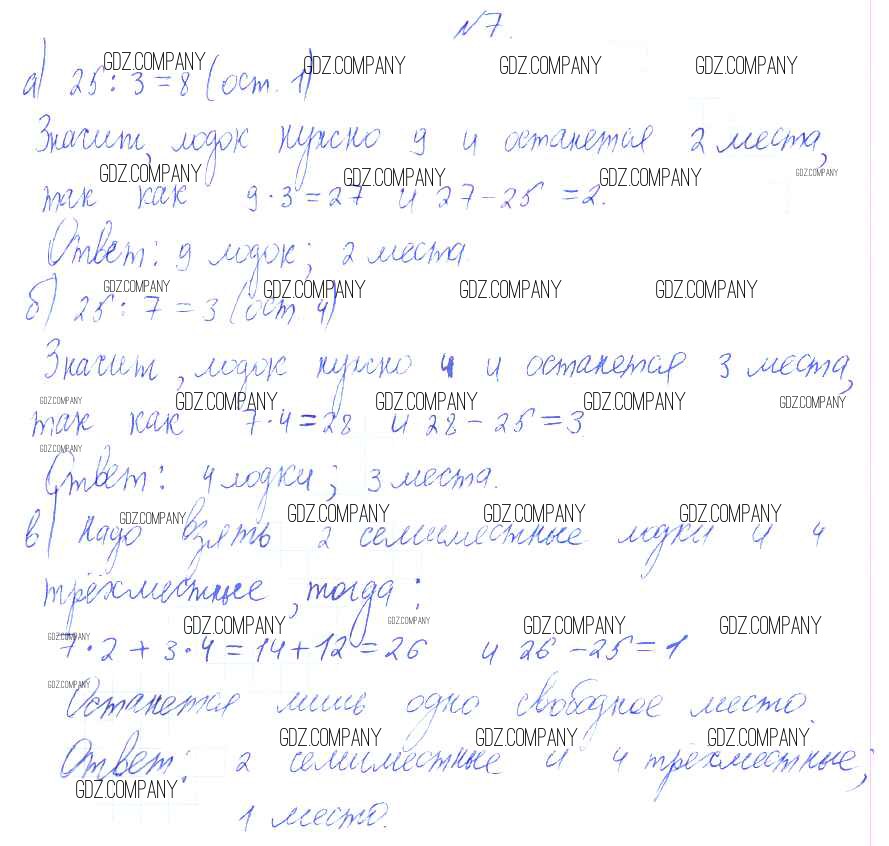 №7.
GDZ.COMPANY GDZ.COMPANY GDZ.COMPANY GDZ.COMPANY
а) 25 : 3 = 8 (ост. 1)
Значит, лодок нужно 9 и останется 2 места,
GDZ.COMPANY GDZ.COMPANY GDZ.COMPANY GDZ.COMPANY
так как 9 · 3 = 27 и 27 – 25 = 2.
Ответ: 9 лодок; 2 места.
GDZ.COMPANY GDZ.COMPANY GDZ.COMPANY GDZ.COMPANY
б) 25 : 7 = 3 (ост 4)
Значит, лодок нужно 4 и останется 3 места,
GDZ.COMPANY GDZ.COMPANY GDZ.COMPANY GDZ.COMPANY GDZ.COMPANY
так как 7 · 4 = 28 и 28 – 25 = 3
GDZ.COMPANY
Ответ: 4 лодки; 3 места.
GDZ.COMPANY GDZ.COMPANY GDZ.COMPANY GDZ.COMPANY
в) Надо взять 2 семиместные лодки и 4
трёхместные, тогда:
GDZ.COMPANY GDZ.COMPANY GDZ.COMPANY GDZ.COMPANY GDZ.COMPANY
7 · 2 + 3 · 4 = 14 + 12 = 26 и 26 – 25 = 1
GDZ.COMPANY
Останется лишь одно свободное место.
GDZ.COMPANY GDZ.COMPANY GDZ.COMPANY
Ответ: 2 семиместные и 4 трёхместные;
GDZ.COMPANY
1 место.